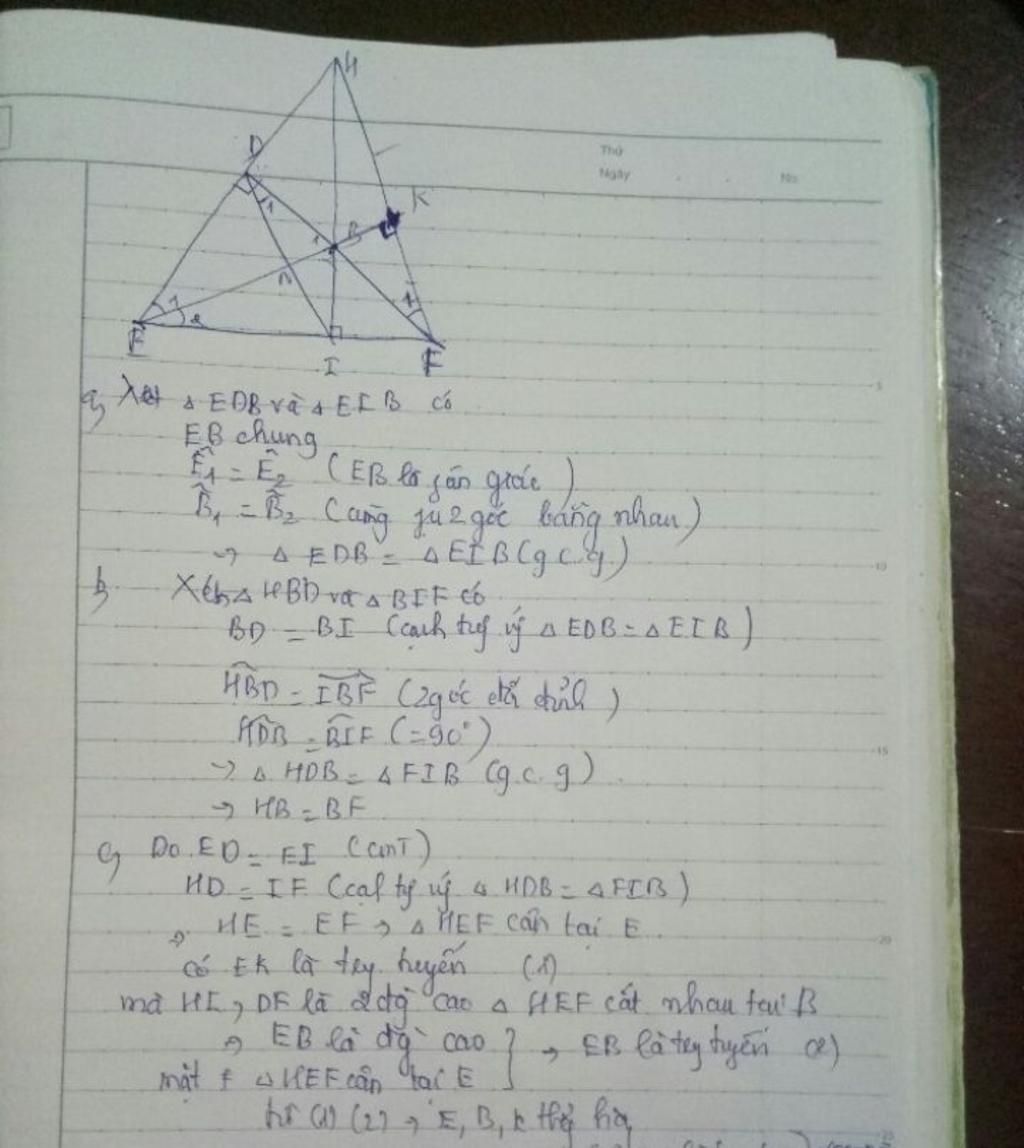 H
D
Thứ
Ngày
No
K
1
1 B
1
1
2
E
I
F
a, Xét Δ EDB và Δ EIB có
EB chung
Ê1 = Ê2 (EB là fân giác)
B̂1 = B̂2 (cùng fụ 2 góc bằng nhau)
→ Δ EDB = Δ EIB (g.c.g)
b, Xét Δ HBD và Δ BIF có
BD = BI (cạnh tg ứ Δ EDB = Δ EIB)
HBD = IBF (2 góc đối đỉnh)
HDB = BIF (= 90°)
→ Δ HDB = Δ FIB (g.c.g)
→ HB = BF
c, Do ED = EI (cmT)
HD = IF (tg ứ Δ HDB = Δ FIB)
→ HE = EF → Δ HEF cân tại E
có EK là tuyến (1)
mà HI, DF là 2 đg cao Δ HEF cắt nhau tại B
→ EB là đg cao } → EB là tuyến (2)
mặt ≠ Δ HEF cân tại E
từ (1) (2) → E, B, K thẳg hàg